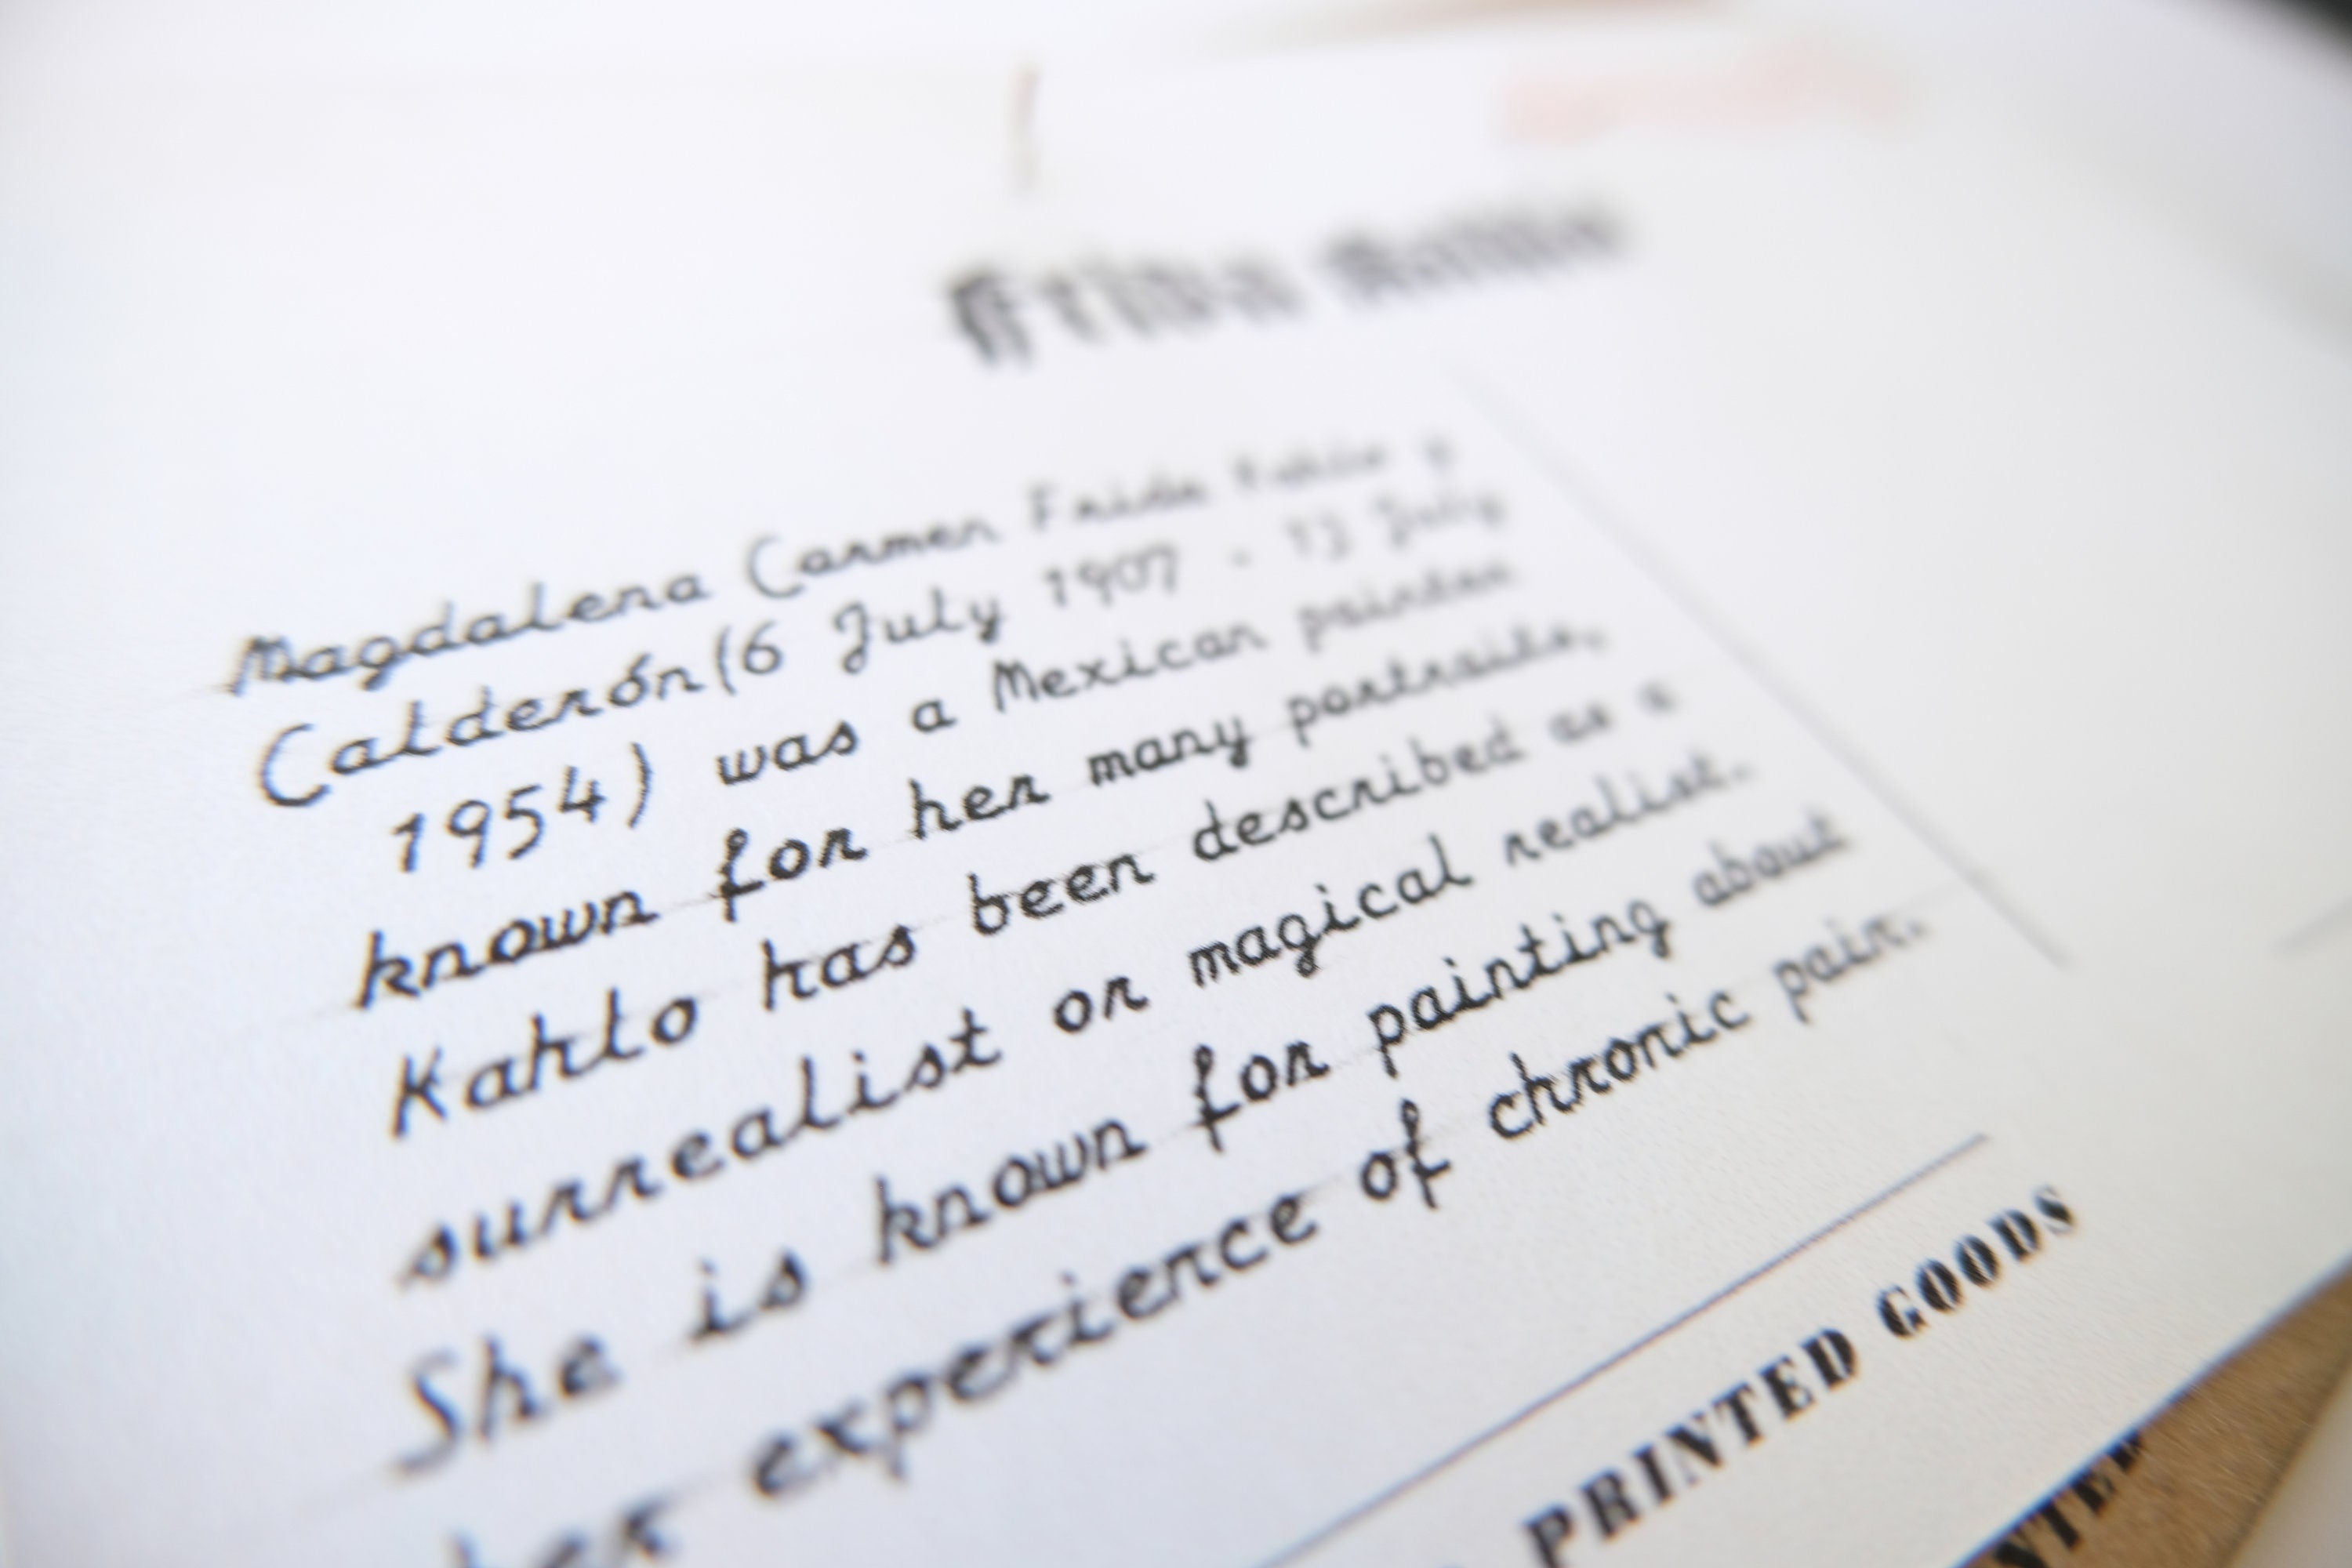 Frida Kahlo
Magdalena Carmen Frida Kahlo y
Calderón (6 July 1907 - 13 July
1954) was a Mexican painter
known for her many portraits,
Kahlo has been described as a
surrealist or magical realist.
She is known for painting about
her experience of chronic pain.
PRINTED GOODS